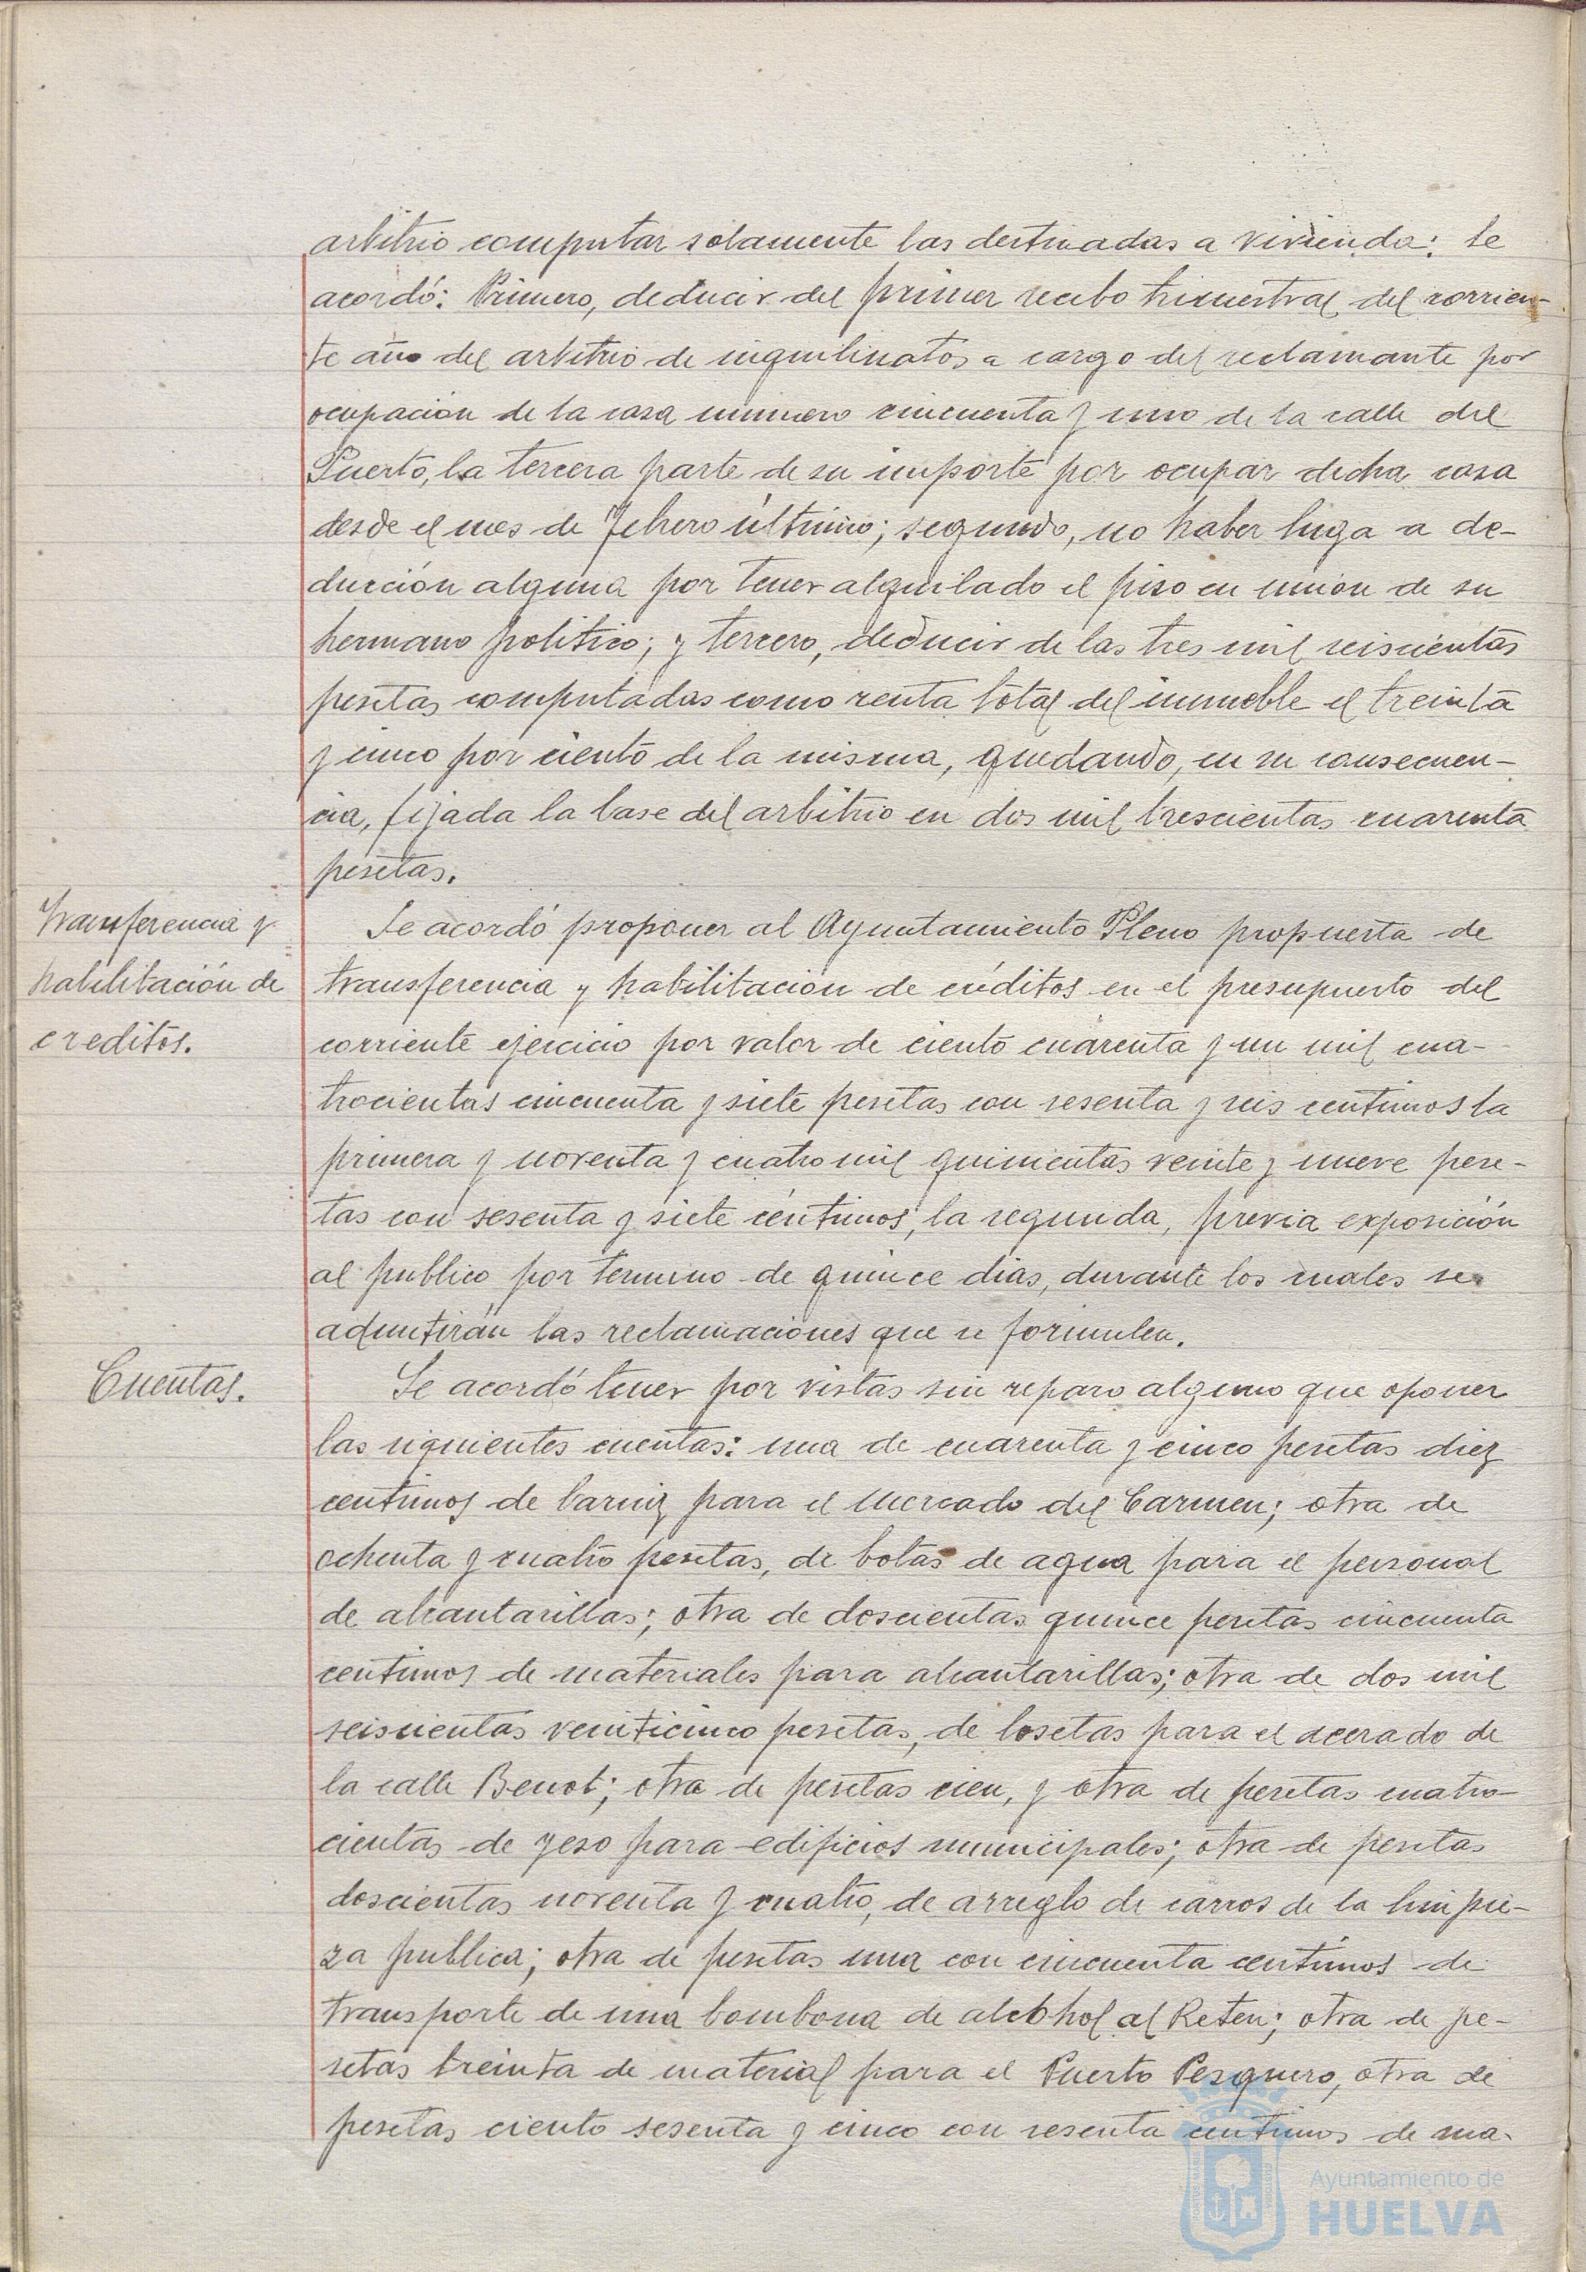 arbitrio computar solamente las destinadas a vivienda: Se
acordó: Primero, deducir del primer recibo trimestral del corrien-
te año del arbitrio de inquilinatos a cargo del reclamante por
ocupacion de la casa número cincuenta y uno de la calle del
Puerto, la tercera parte de su importe por ocupar dicha casa
desde el mes de Febrero último; segundo, no haber luga a de-
ducción alguna por tener alquilado el piso en union de su
hermano politico; y tercero, deducir de las tres mil seiscientas
pesetas computadas como renta total del inmueble el treinta
y cinco por ciento de la misma, quedando, en su consecuen-
cia, fijada la base del arbitrio en dos mil trescientas cuarenta
pesetas.
Transferencia y
habilitación de
creditos.
Se acordó proponer al Ayuntamiento Pleno propuesta de
transferencia y habilitacion de créditos en el presupuesto del
corriente ejercicio por valor de ciento cuarenta y un mil cua-
trocientas cincuenta y siete pesetas con sesenta y seis centimos la
primera y noventa y cuatro mil quinientas veinte y nueve pese-
tas con sesenta y siete céntimos, la segunda, previa exposición
al publico por termino de quince dias, durante los cuales se
admitirán las reclamaciones que se formulen.
Cuentas.
Se acordó tener por vistas sin reparo alguno que oponer
las siguientes cuentas: una de cuarenta y cinco pesetas diez
centimos de barniz para el Mercado del Carmen; otra de
ochenta y cuatro pesetas, de botas de agua para el personal
de alcantarillas; otra de doscientas quince pesetas cincuenta
centimos de materiales para alcantarillas; otra de dos mil
seiscientas veinticinco pesetas, de losetas para el acerado de
la calle Benot; otra de pesetas cien, y otra de pesetas cuatro-
cientas de yeso para edificios municipales; otra de pesetas
doscientas noventa y cuatro, de arreglo de carros de la limpie-
za publica; otra de pesetas una con cincuenta centimos de
transporte de una bombona de alcohol al Reten; otra de pe-
setas treinta de material para el Puerto Pesquero, otra de
pesetas ciento sesenta y cinco con sesenta centimos de ma-
Ayuntamiento de
HUELVA